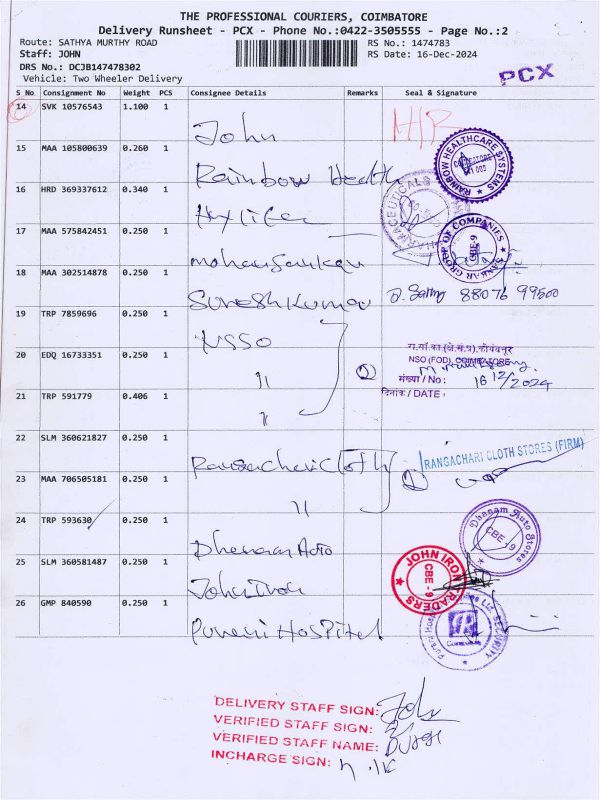 THE PROFESSIONAL COURIERS, COIMBATORE
Delivery Runsheet - PCX - Phone No.:0422-3505555 - Page No.:2
Route: SATHYA MURTHY ROAD RS No.: 1474783
Staff: JOHN RS Date: 16-Dec-2024
DRS No.: DCJB147478302
Vehicle: Two Wheeler Delivery
PCX
S No Consignment No Weight PCS Consignee Details Remarks Seal & Signature
14 SVK 10576543 1.100 1 John
15 MAA 105800639 0.260 1 Rainbow Health
RAINBOW HEALTHCARE SYSTEMS
16 HRD 369337612 0.340 1
17 MAA 575842451 0.250 1 mohan Sankar
GROUP OF COMPANIES CBE-9
18 MAA 302514878 0.250 1 Suresh Kumar 88076 99500
19 TRP 7859696 0.250 1 NSSO
20 EDQ 16733351 0.250 1 "
NSO (FOD), COIMBATORE
संख्या / No :
दिनांक / DATE : 16/12/2024
21 TRP 591779 0.406 1 "
22 SLM 360621827 0.250 1 Rangachari Cloth
RANGACHARI CLOTH STORES (FIRM)
23 MAA 706505181 0.250 1 "
24 TRP 593630 0.250 1 Dhanam Auto
Dhanam Auto Stores CBE-19
25 SLM 360581487 0.250 1 John Iron
JOHN IRON TRADERS CBE-9
26 GMP 840590 0.250 1 Hospital
SECURITY
DELIVERY STAFF SIGN:
VERIFIED STAFF SIGN:
VERIFIED STAFF NAME:
INCHARGE SIGN: